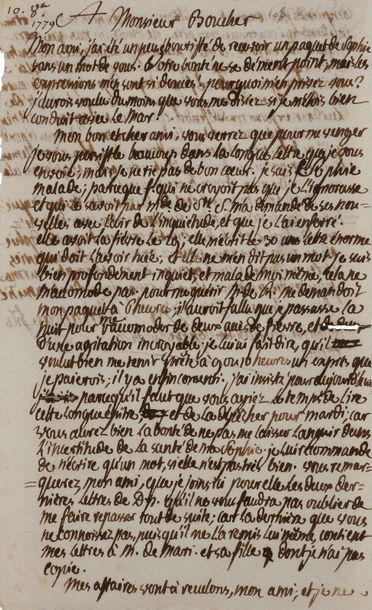 10. 8bre
1779
A Monsieur Boucher
Mon ami, j'ai été un peu ébouriffé de recevoir un paquet de Sophie
sans un mot de vous. votre bonté ne se dément point, mais les
expressions m'en sont si douces, pourquoi m'en privez vous?
j'aurois voulu du moins que vous me disiez si je m'étois bien
conduit avec le Mar.
Mon bon et cher ami, vous verrez que pour me venger
je vous persiffle beaucoup dans la longue lettre que je vous
envoie; mais je ne ris pas de bon cœur. je sais Sophie
malade; parceque f. qui ne croyoit pas que je l'ignorasse
et qui le savoit par Mde de m'a demandé de ses nou-
velles avec l'air de l'inquiétude, et que je l'ai enferré.
elle avoit la fièvre le 29; elle m'écrit le 30 une lettre énorme
qui doit l'avoir tuée, et elle ne m'en dit pas un mot. je suis
bien profondément inquiet, et malade moi même, cela ne
m'accomode pas pour me guérir. M. de me demandoit
mon paquet à 7 heures; il auroit fallu que je passasse la
nuit pour m'accomoder de deux ans de fièvre, et
d'une agitation incroyable; je lui ai fait dire, qu'il
voulut bien me tenir prête à 9 ou 10 heures un exprès que
je paierois; il y a enfin consenti. j'ai insisté pour aujourd'hui
parcequ'il faut que vous ayiez le temps de lire
cette longue épitre et de la dépêcher pour mardi; car
vous aurez bien la bonté de ne pas me laisser languir dans
l'incertitude de la santé de ma Sophie. je lui recommande
de n'écrire qu'un mot, si elle n'est très bien. vous remar-
querez mon ami, que je joins ici pour elle les deux der-
nières lettres de Dp. qu'il ne vous faudra pas oublier de
me faire repasser tout de suite; car la dernière que vous
ne connoissez pas, puisqu'il me l'a remis lui même, contient
mes lettres à M. de Mari. et sa fille dont je n'ai pas
copie.
Mes affaires vont à reculons, mon ami, et je ne